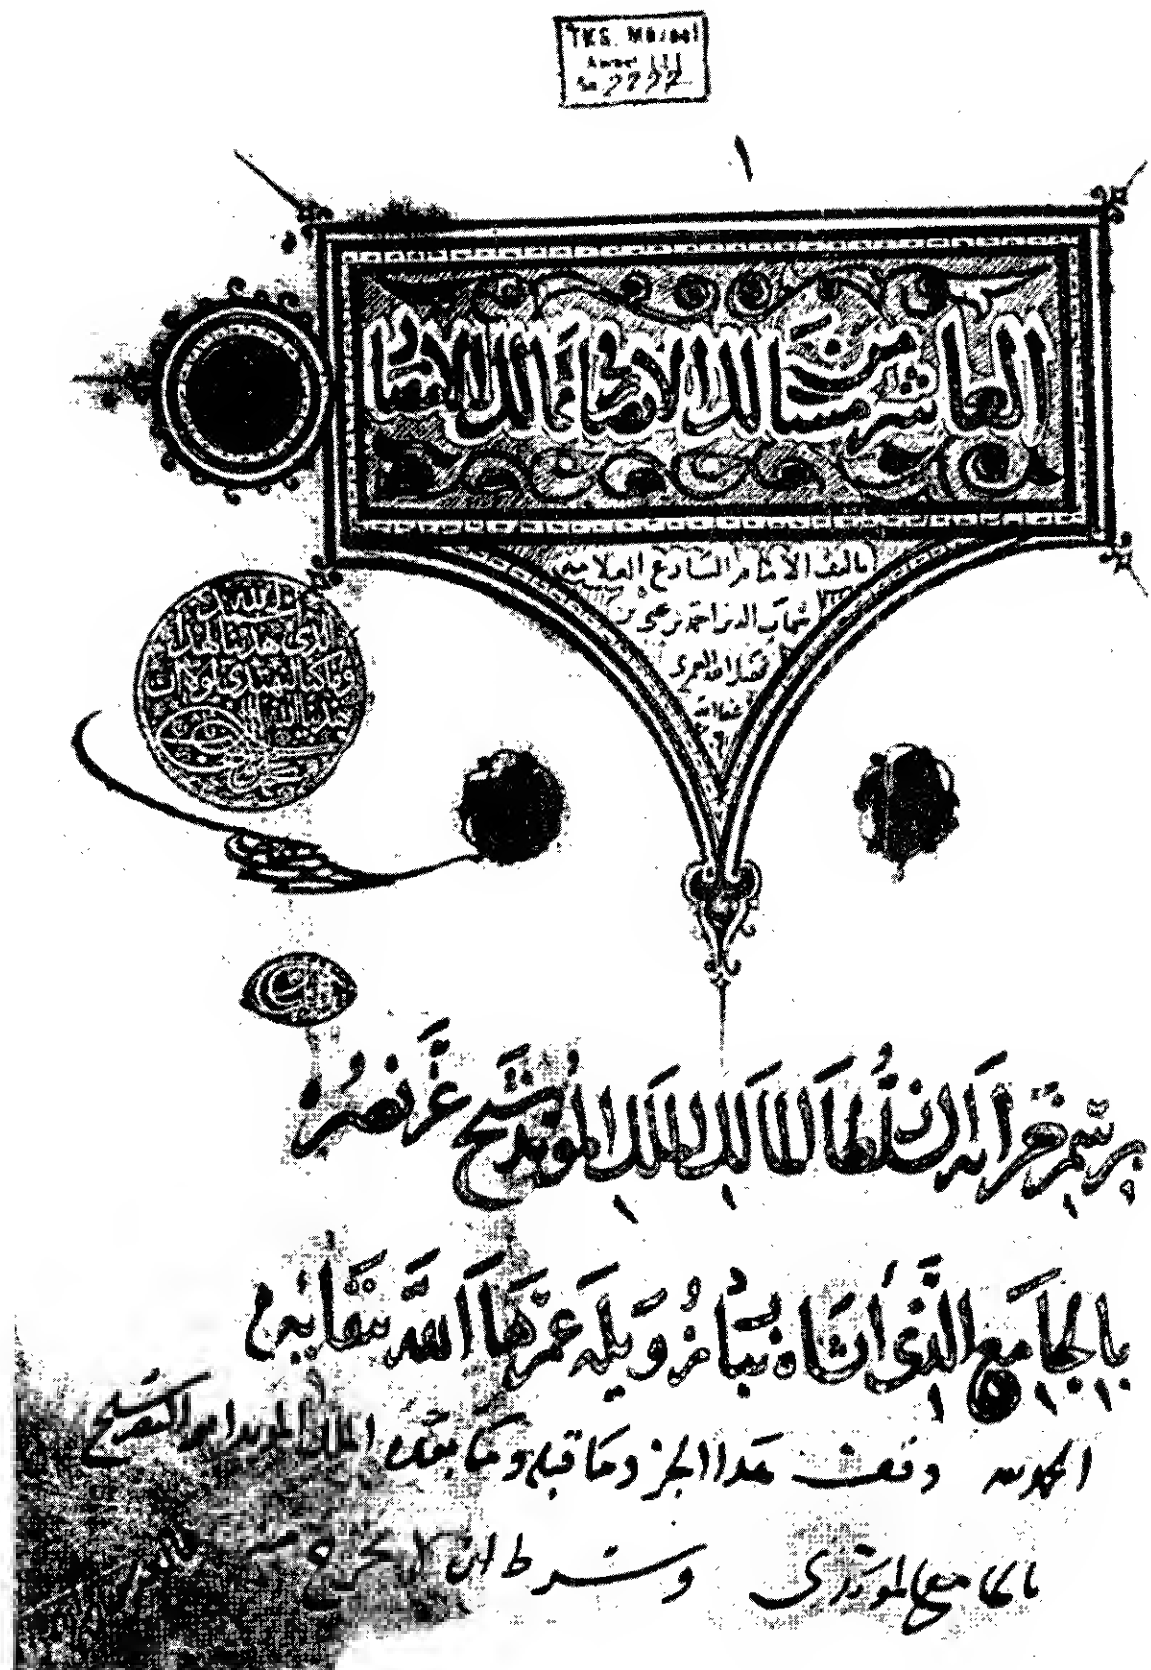 TKS. Müzesi
Ahmet III
No 2797
١
العاشر من مسالك الابصار ممالك الامصار
تاليف الامام البارع العلامه
شهاب الدين احمد بن يحيى بن
فضل الله العمرى
الحمد لله
الذي هدانا لهذا
وما كنا لنهتدي لولا ان
هدانا الله
برسم خزانة السلطان المالك الملك المؤيد شيخ عَزَّ نصرُه
بالجامع الَّذي أنشاه بباب زويلة عمرها الله ببقائه
الحمد لله وقف هذا الجزء وما قبله وما بعده الملك المؤيد ابو النصر شيخ
بالجامع المويدى وشرط ان لا يخرج منه